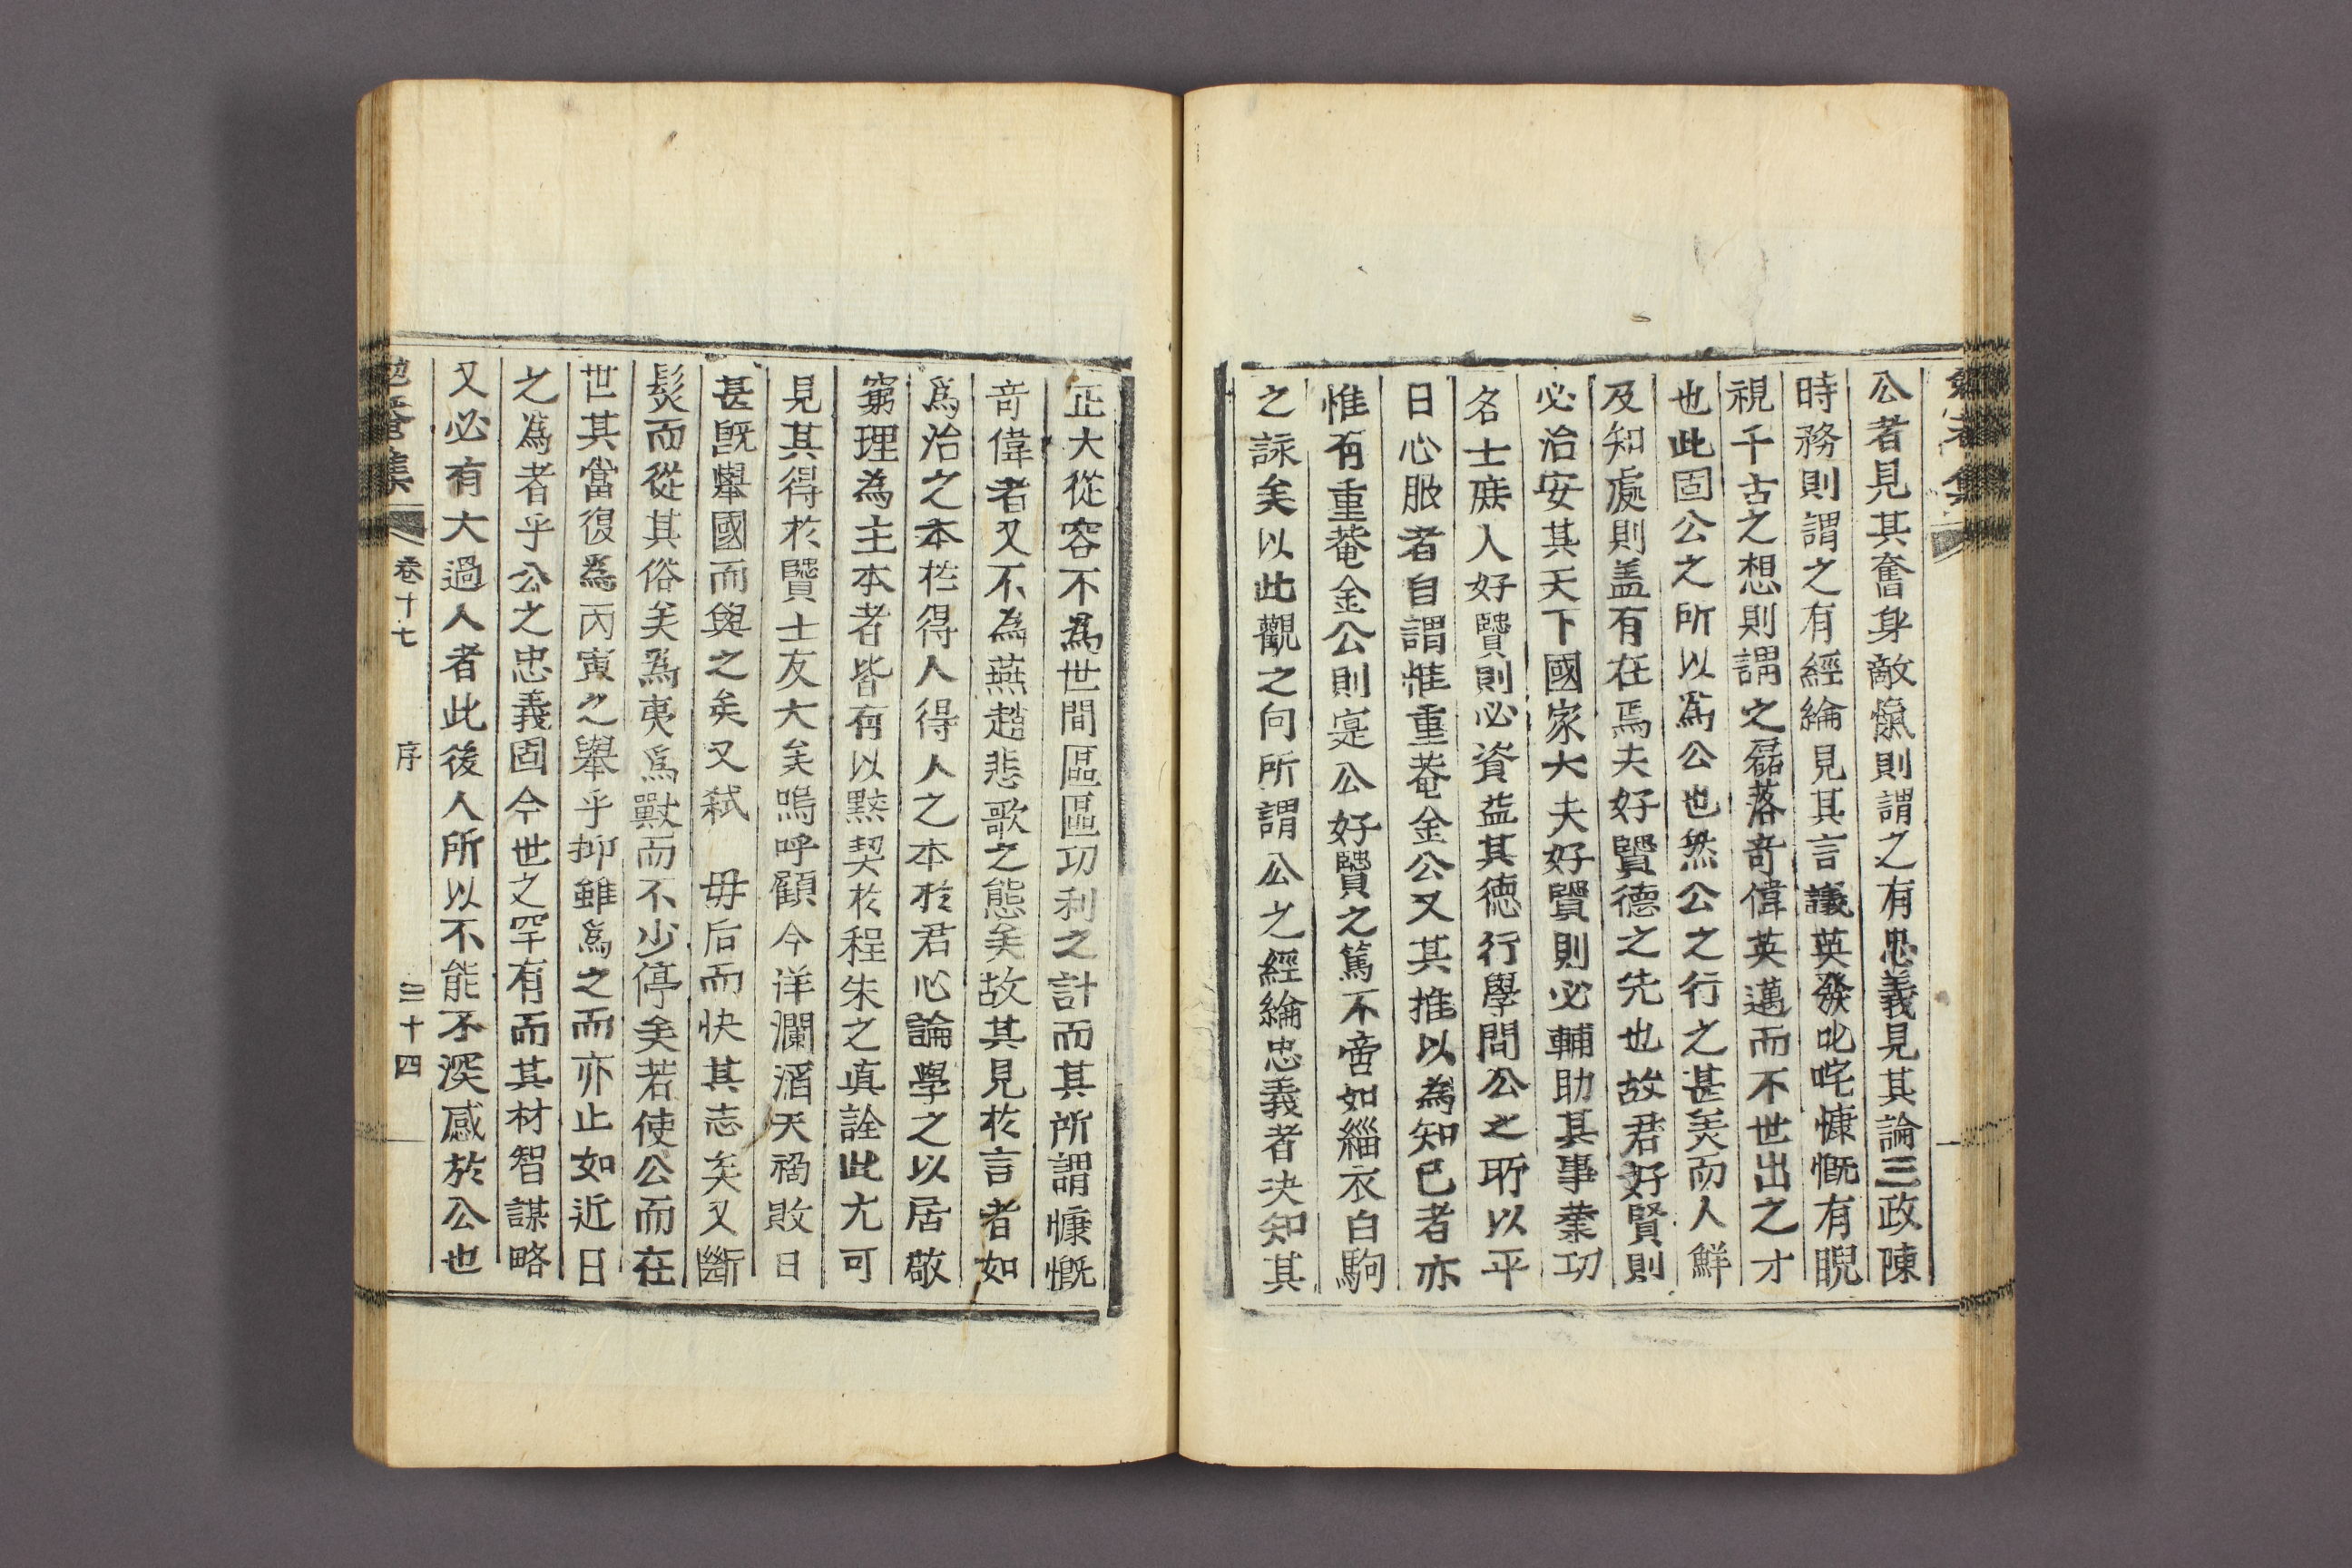 公者見其奮身敵愾則謂之有忠義見其論三政陳
時務則謂之有經綸見其言議英發叱咤慷慨有睨
視千古之想則謂之磊落竒偉英邁而不世出之才
也此固公之所以爲公也然公之行之甚羙而人鮮
及知處則盖有在焉夫好賢德之先也故君好賢則
必治安其天下國家大夫好賢則必輔助其事業功
名士庶人好賢則必資益其德行學問公之所以平
日心服者自謂惟重菴金公又其推以為知已者亦
惟有重菴金公則寔公好賢之篤不啻如緇衣白駒
之詠矣以此觀之向所謂公之經綸忠義者决知其
正大從容不爲世間區區功利之計而其所謂慷慨
竒偉者又不為燕趙悲歌之態矣故其見於言者如
爲治之本在得人得人之本在君心論學之以居敬
窮理為主本者皆有以黙契於程朱之眞詮此尤可
見其得於賢士友大矣嗚呼顧今洋瀾滔天禍敗日
甚旣擧國而與之矣又弑 毋后而快其志矣又斷
髮而從其俗矣爲夷爲獸而不少停矣若使公而在
世其當復爲丙寅之擧乎抑雖爲之而亦止如近日
之爲者乎公之忠義固今世之罕有而其材智謀略
又必有大過人者此後人所以不能不深感於公也
勉菴集 卷十七 序 三十四